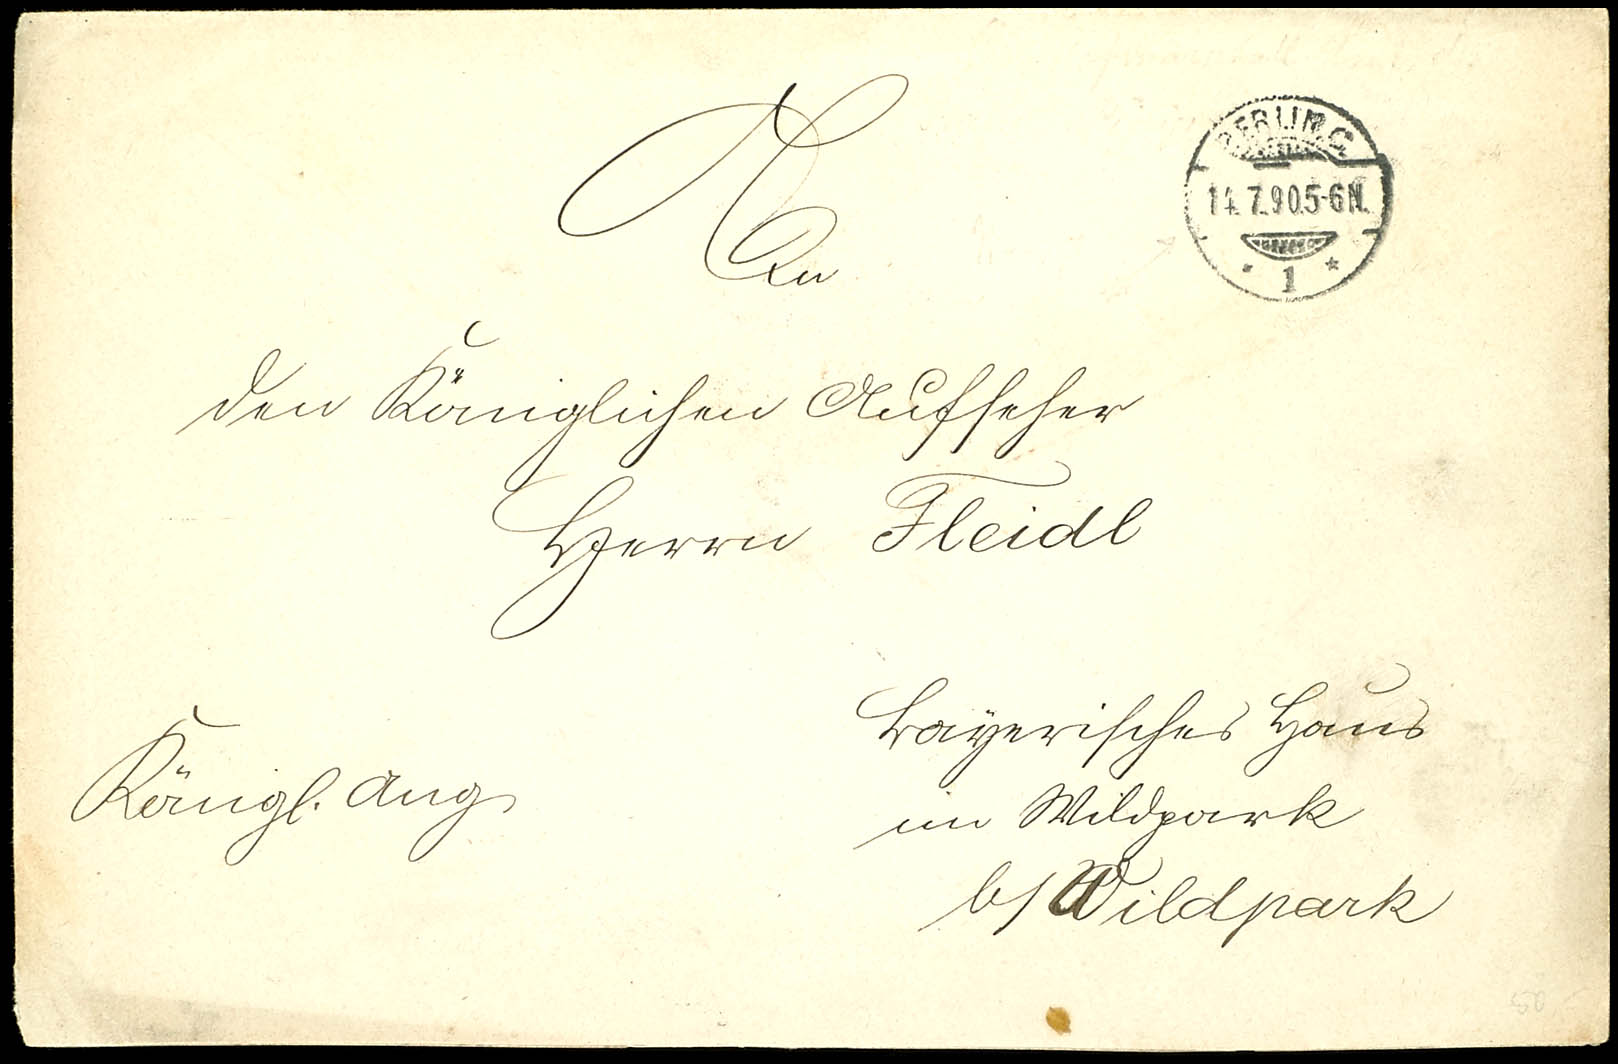 BERLIN.C.
14.7.90.5-6N.
* 1 *
An
den Königlichen Aufseher
Herrn Fleidl
Bayerisches Haus
Königl. Ang.
im Wildpark
b/Wildpark
50